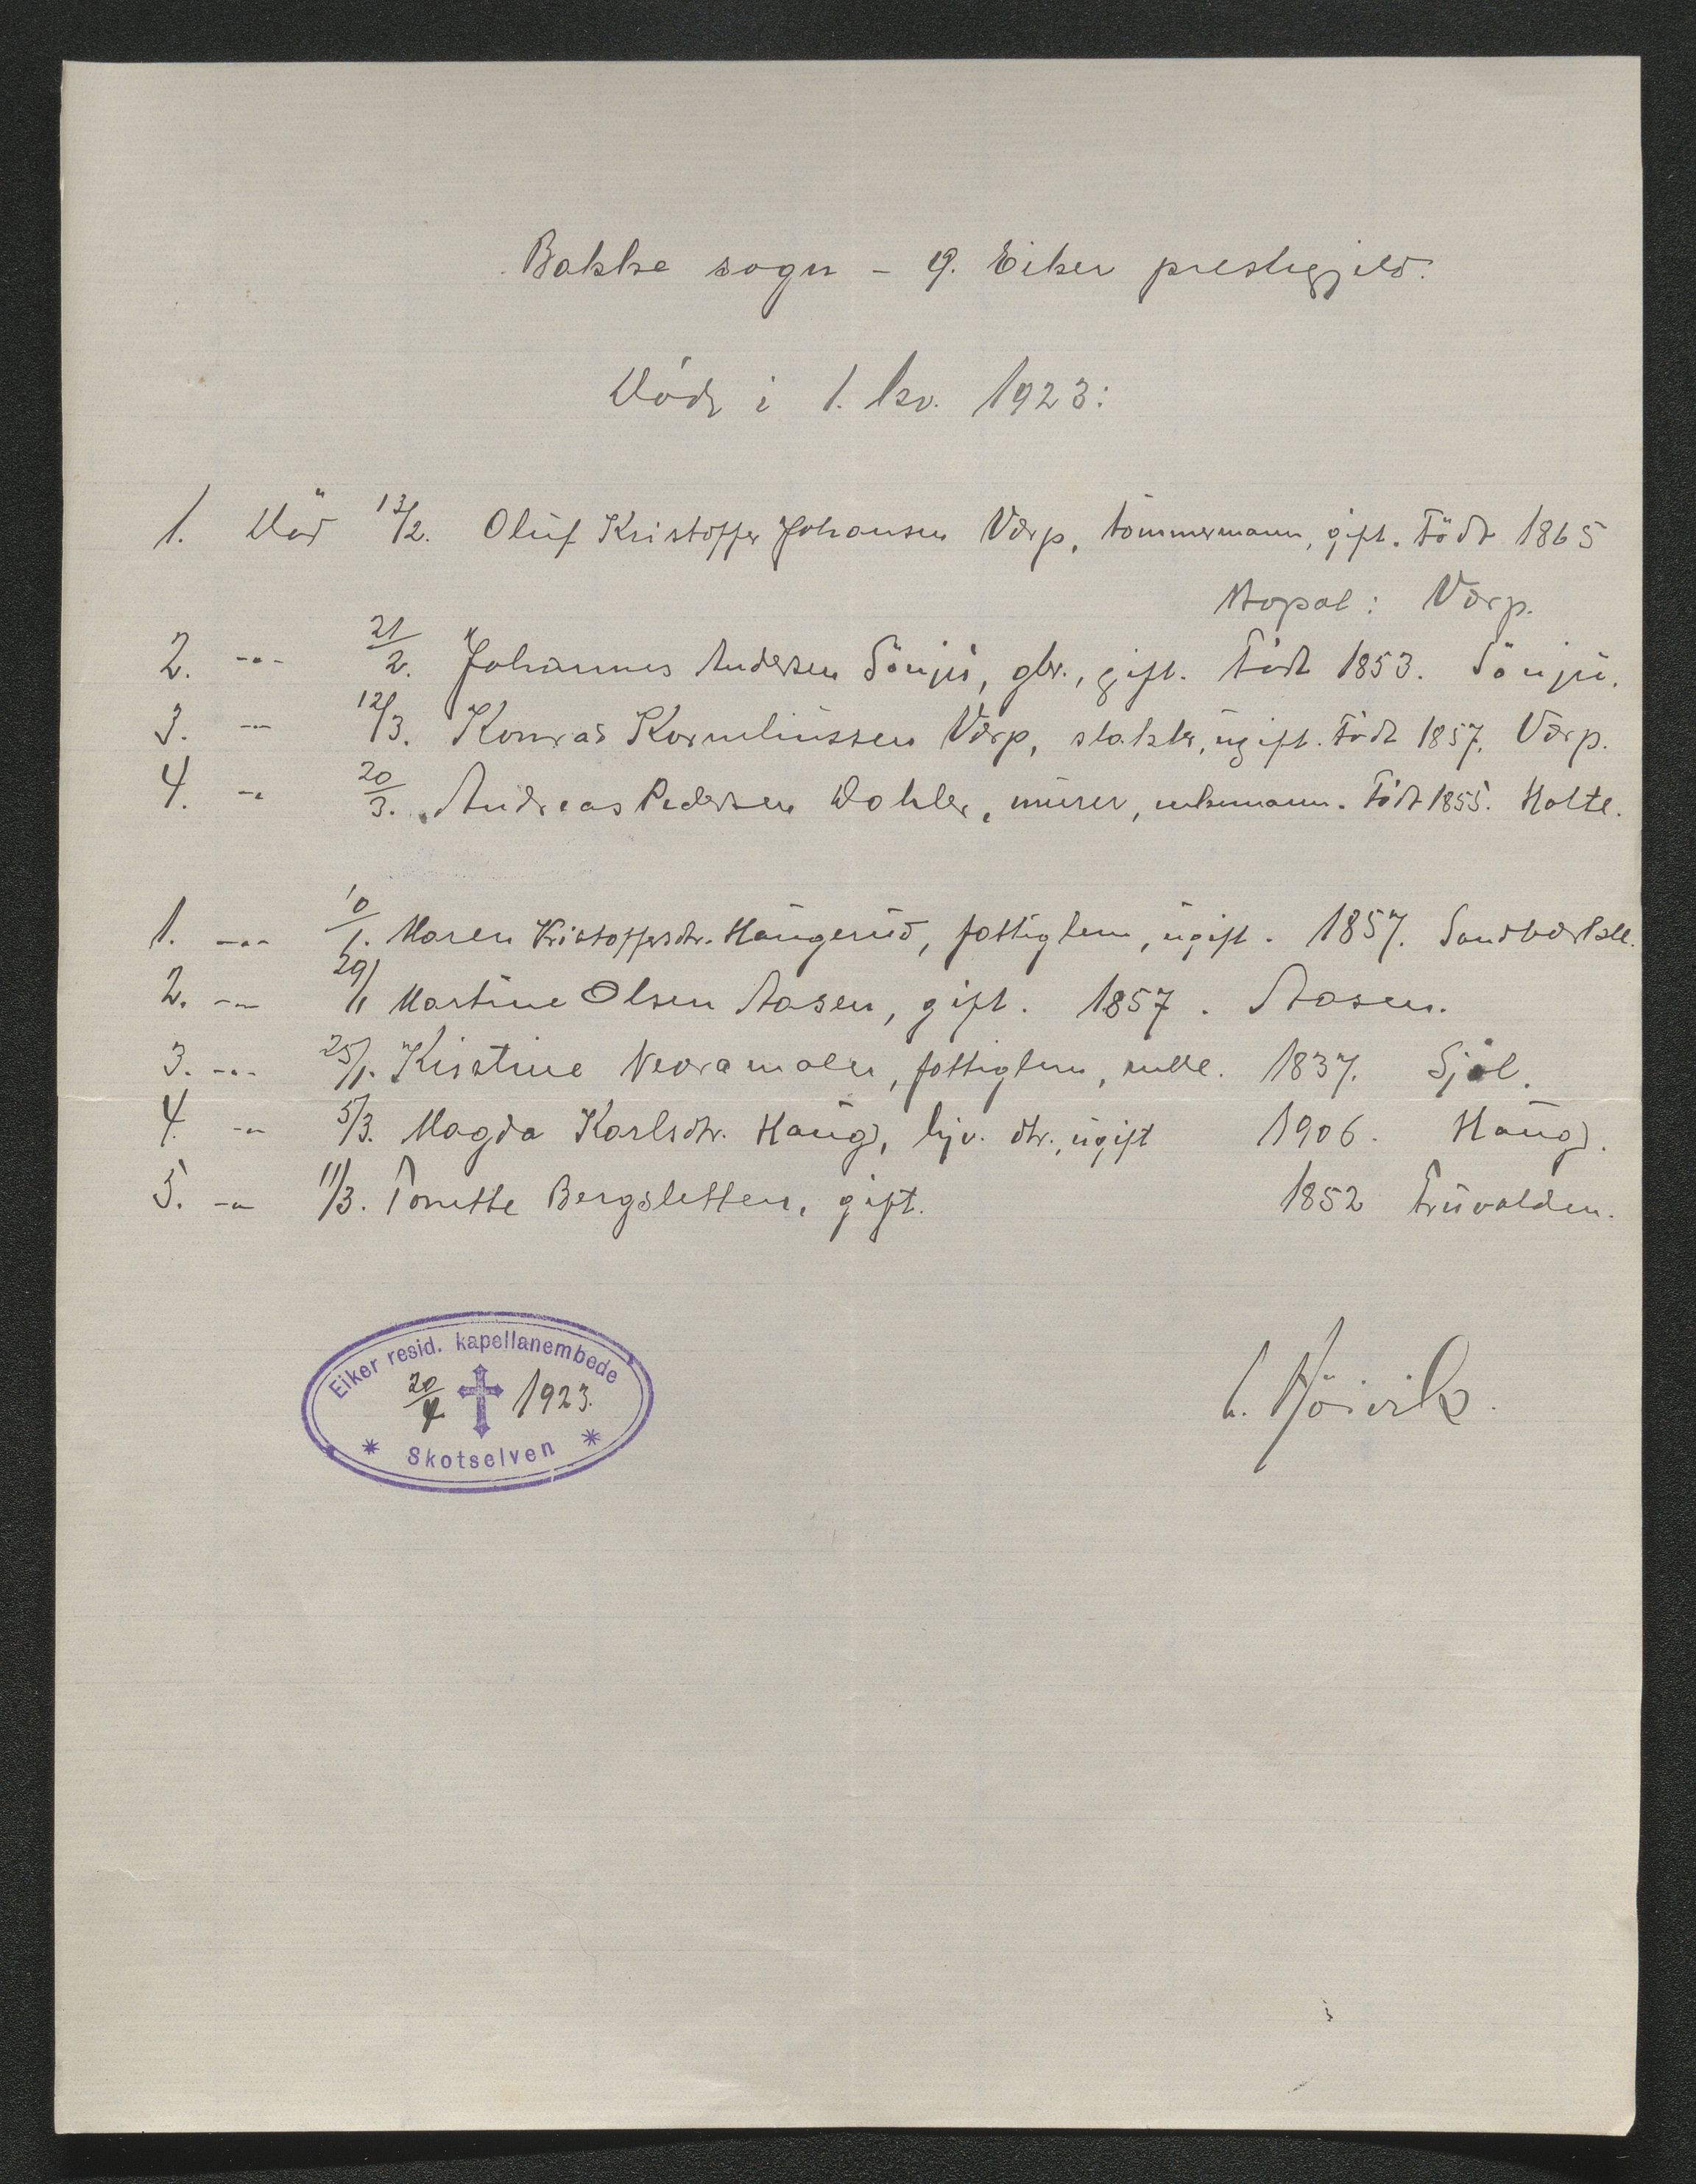 Bakke sogn – Ø. Eiker prestegjeld.
Döde i 1. kv. 1923:
1. Död 13/2. Oluf Kristoffer Johansen Varp, tömmermann, gift. Född 1865
Dopal: Varp.
2. -"- 21/2. Johannes Andersen Sönju, gbr., gift. Född 1853. Sönju.
3. -"- 12/3. Konrad Korneliussen Varp, slakter, ugift. Född 1857. Varp.
4. -"- 20/3. Andreas Pedersen Dahler, murer, enkemann. Född 1855. Holte.
1. -"- 10/1. Maren Kristoffersdtr. Haugerud, fattiglem, ugift. 1857. Sandbakk.
2. -"- 29/1 Martine Olsen Aasen, gift. 1857. Aasen.
3. -"- 25/1. Kristine Nedramalen, fattiglem, enke. 1837. Sjøl.
4. -"- 5/3. Magda Karlsdtr. Haug, hjv. dtr., ugift 1906. Haug.
5. -"- 11/3. Tonette Bergsletten, gift. 1852
Eiker resid. kapellanembede
20/4 1923.
Skotselven
L. Höivik.